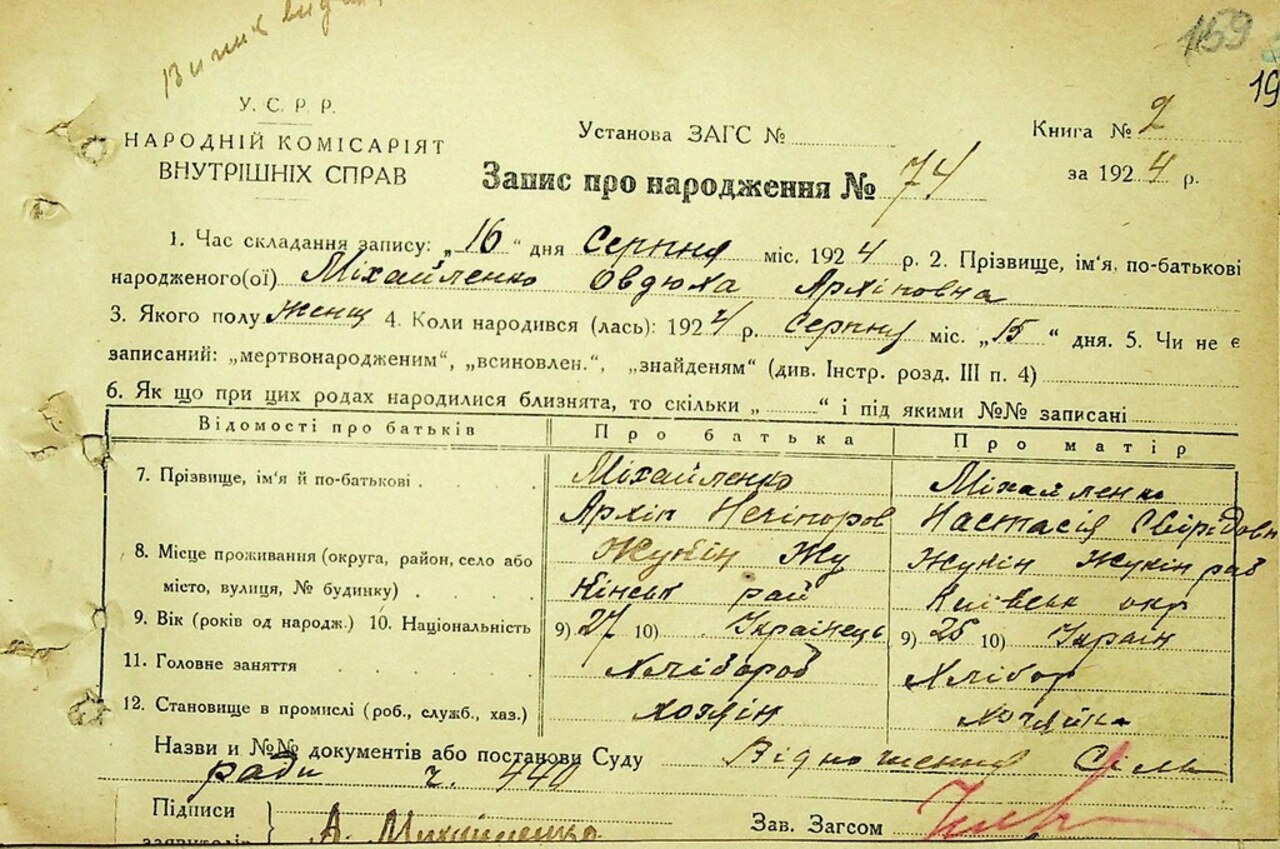 Витяг видан
159
19
У. С. Р. Р.
НАРОДНІЙ КОМІСАРІЯТ
ВНУТРІШНІХ СПРАВ
Установа ЗАГС №
Книга № 2
за 1924 р.
Запис про народження № 74
1. Час складання запису: „16“ дня Серпня міс. 1924 р. 2. Прізвище, ім'я, по-батькові
народженого(ої) Міхайленко Овдюха Архіповна
3. Якого полу женщ 4. Коли народився (лась): 1924 р. Серпня міс. „15“ дня. 5. Чи не є
записаний: „мертвонародженим“, „всиновлен.“, „знайденям“ (див. Інстр. розд. III п. 4)
6. Як що при цих родах народилися близнята, то скільки „ “ і під якими №№ записані
Відомості про батьків Про батька Про матір
7. Прізвище, ім'я й по-батькові Міхайленко Міхайленко
Архіп Нечіпоров Настасія Свірідовн
8. Місце проживання (округа, район, село або Жукін Жу Жукін Жукін рай
місто, вулиця, № будинку) кінськ рай Київськ окр
9. Вік (років од народж.) 10. Національність 9) 27 10) Українець 9) 25 10) Украін
11. Головне заняття Хлібороб Хлібор
12. Становище в промислі (роб., служб., хаз.) хозяін хозяйка
Назви и №№ документів або постанови Суду Відношення Сіль
ради ч. 440
Підписи
заявителів А. Михайленко
Зав. Загсом